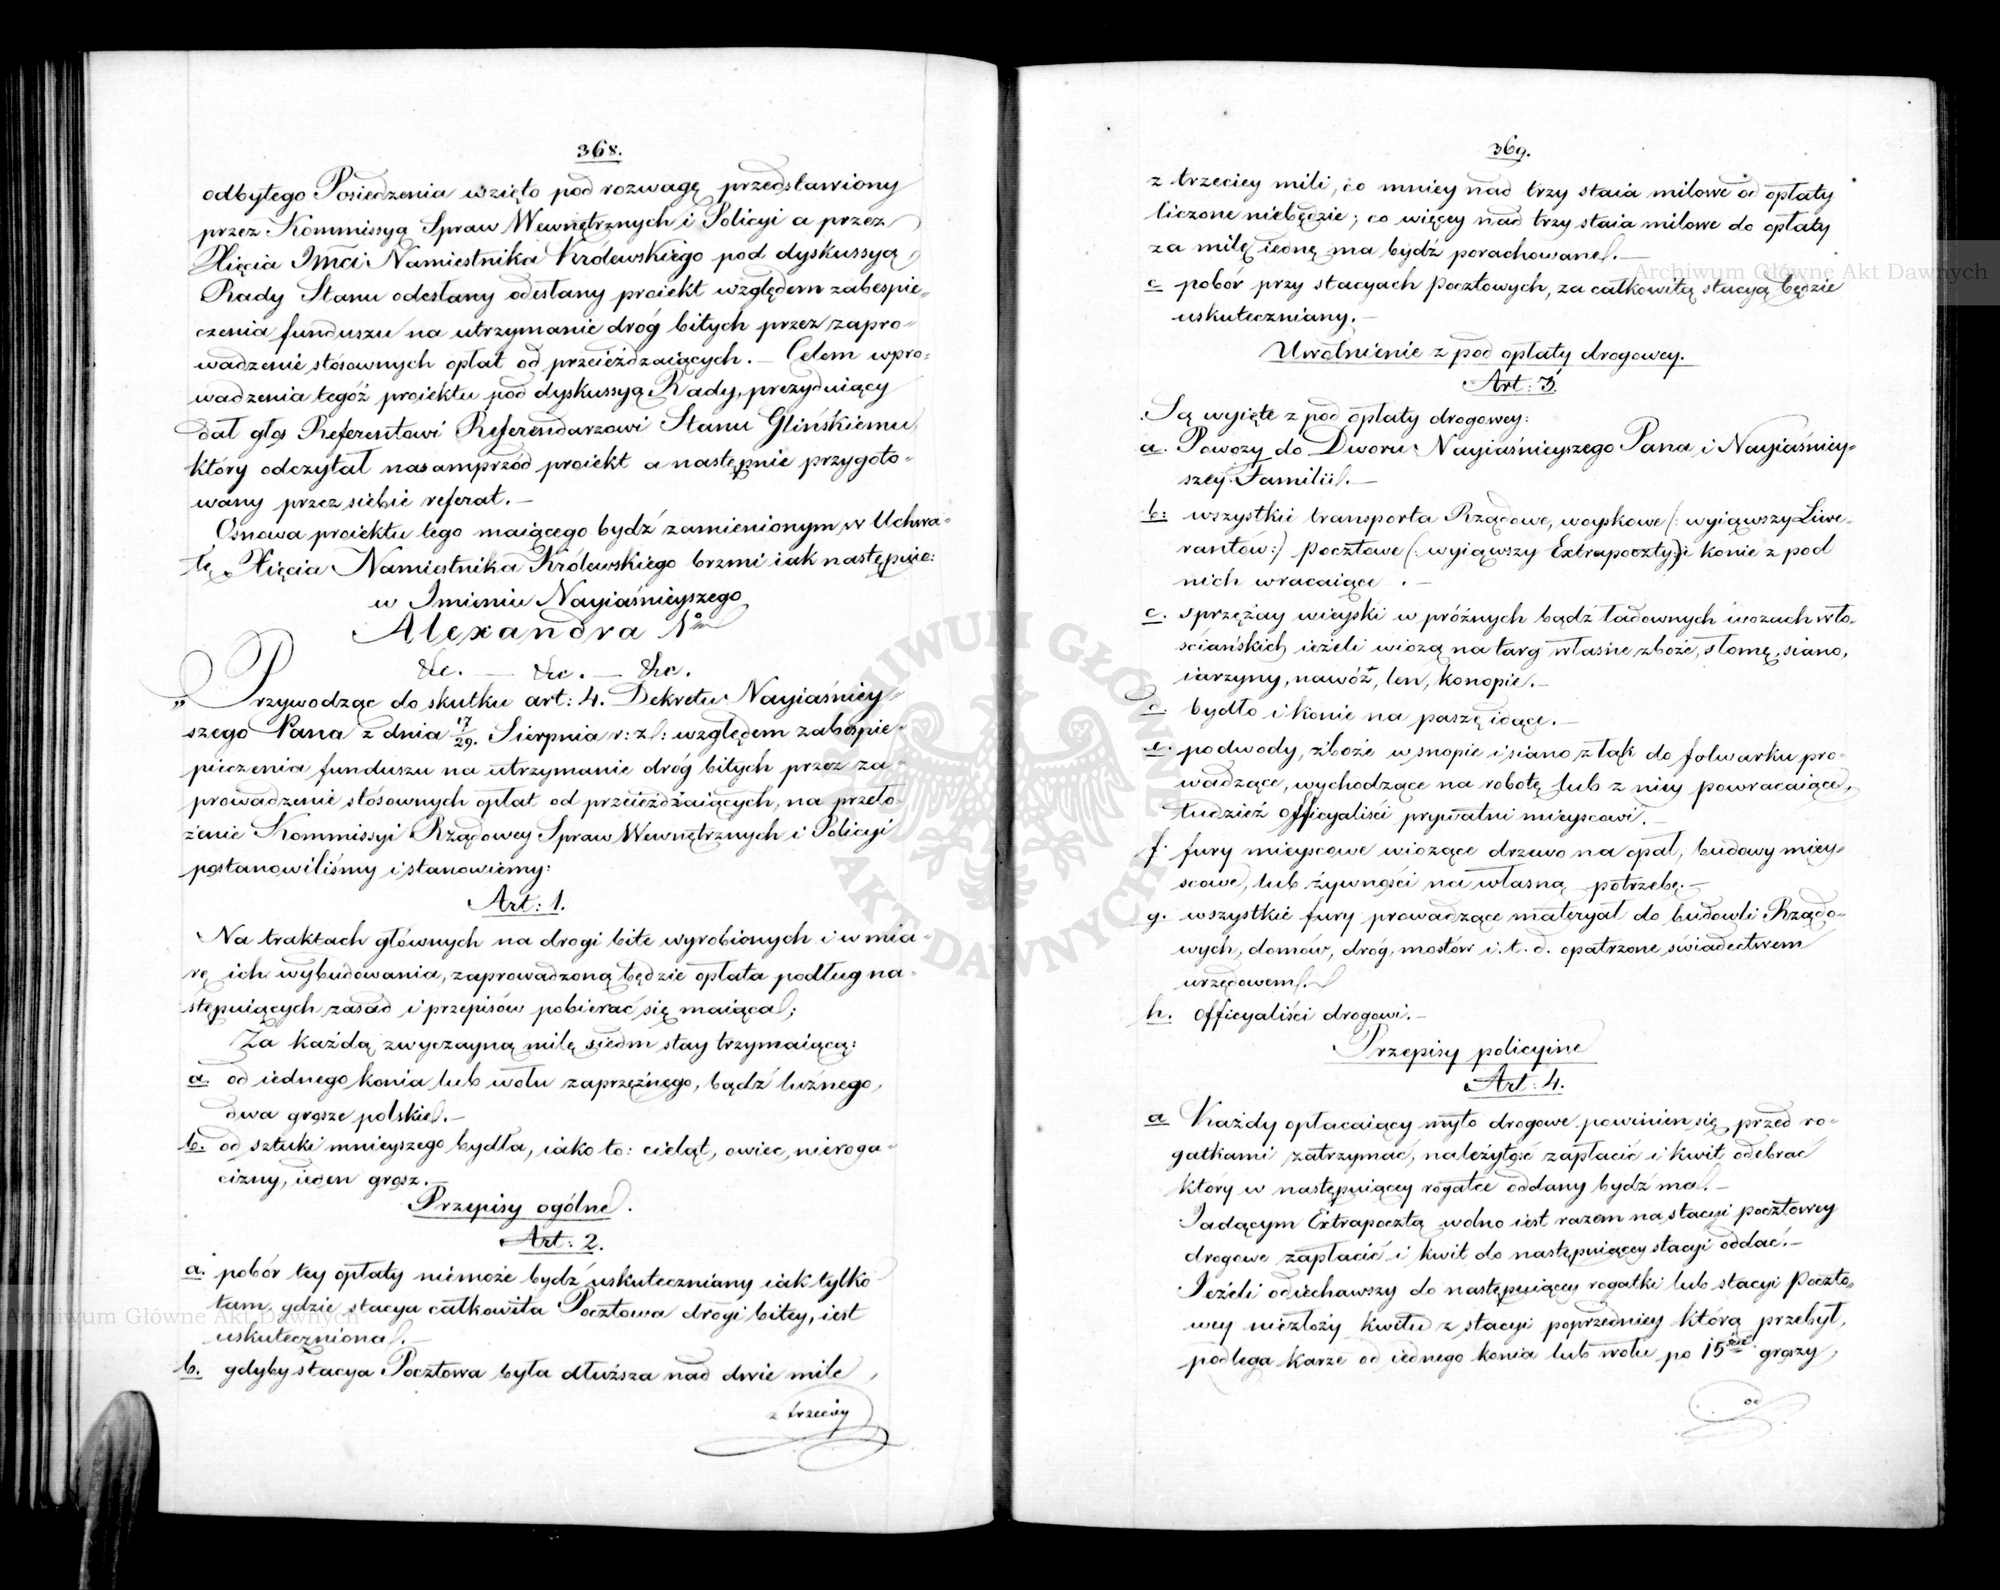 368.
odbytego Posiedzenia wzięto pod rozwagę przedstawiony
przez Kommissyą Spraw Wewnętrznych i Policyi a przez
Xięcia Jmci Namiestnika Królewskiego pod dyskussyą
Rady Stanu odesłany odesłany proiekt względem zabespie-
czenia funduszu na utrzymanie dróg bitych przez zapro-
wadzenie stósownych opłat od przeieżdzaiących. — Celem wpro-
wadzenia tegóż proiektu pod dyskussyą Rady, prezyduiący
dał głos Referentowi Referendarzowi Stanu Glińskiemu,
który odczytał nasamprzód proiekt a następnie przygoto-
wany przez siebie referat. —
Osnowa proiektu tego maiącego bydź zamienionym w Uchwa-
łę Xięcia Namiestnika Królewskiego brzmi iak następuie:
w Imieniu Nayiaśnieyszego
Alexandra 1º
&c. — &c. — &c.
„Przywodząc do skutku art: 4. Dekretu Nayiaśniey-
szego Pana z dnia 17/29. Sierpnia r: z: względem zabespie-
pieczenia funduszu na utrzymanie dróg bitych przez za-
prowadzenie stósownych opłat od przeieżdżaiących, na przeło-
żenie Kommissyi Rządowey Spraw Wewnętrznych i Policyi
postanowiliśmy i stanowiemy:
Art: 1.
Na traktach głównych na drogi bite wyrobionych i w mia-
rę ich wybudowania, zaprowadzoną będzie opłata podług na-
stępuiących zasad i przepisów pobierać się maiąca;
Za każdą zwyczayną milę siedm stay trzymaiącą:
a. od iednego konia lub wołu zaprzężnego, bądź luźnego,
dwa grosze polskie. —
b. od sztuki mnieyszego bydła, iako to: cieląt, owiec, nieroga-
cizny, ieden grosz. —
Przepisy ogólne.
Art: 2.
a. pobór tey opłaty niemoże bydź uskuteczniany iak tylko
tam, gdzie stacya całkowita Pocztowa drogi bitey, iest
uskuteczniona. —
b. gdyby stacya Pocztowa była dłuższa nad dwie mile,
z trzeciey
369.
z trzeciey mili, co mniey nad trzy staia milowe od opłaty
liczone niebędzie; co więcey nad trzy staia milowe do opłaty
za milę iednę ma bydź porachowane. —
c pobór przy stacyach pocztowych, za całkowitą stacyą będzie
uskuteczniany. —
Uwolnienie z pod opłaty drogowey.
Art: 3.
Są wyięte z pod opłaty drogowey:
a. Powozy do Dworu Nayiaśnieyszego Pana i Nayiaśniey-
szey Familii. —
b: wszystkie transporta Rządowe, woyskowe (: wyiąwszy Liwe-
rantow:) pocztowe (: wyiąwszy Extrapoczty:) i konie z pod
nich wracaiące. —
c. sprzężay wieyski w próżnych bądź ładownych wozach wło-
ściańskich ieżeli wiozą na targ własne zboże, słomę, siano,
iarzyny, nawóz, len, konopie. —
d. bydło i konie na paszę idące. —
e. podwody, zboże w snopie i siano z łąk do folwarku pro-
wadzące, wychodzące na robotę lub z niey powracaiące,
tudzież officyaliści prywatni mieyscowi. —
f. fury mieyscowe wiozące drzewo na opał, budowy miey-
scowe, lub żywności na własną potrzebę. —
g. wszystkie fury prowadzące materyał do budowli Rządo-
wych, domów, dróg, mostów i. t. d. opatrzone świadectwem
urzędowem. —
h. officyaliści drogowi. —
Przepisy policyine
Art: 4.
a Każdy opłacaiący myto drogowe powinien się przed ro-
gatkami zatrzymać, należytość zapłacić i kwit odebrać
który w następuiącey rogatce oddany bydź ma. —
Jadącym Extrapocztą wolno iest razem na stacyi pocztowey
drogowe zapłacić i kwit do następuiącey stacyi oddać. —
Jeżeli odiechawszy do następuiącey rogatki lub stacyi poczto-
wey niezłoży kwitu z stacyi poprzedniey którą przebył,
podlega karze od iednego konia lub wołu po 15ście groszy,
od
Archiwum Główne Akt Dawnych
Archiwum Główne Akt Dawnych
ARCHIWUM GŁÓWNE AKT DAWNYCH